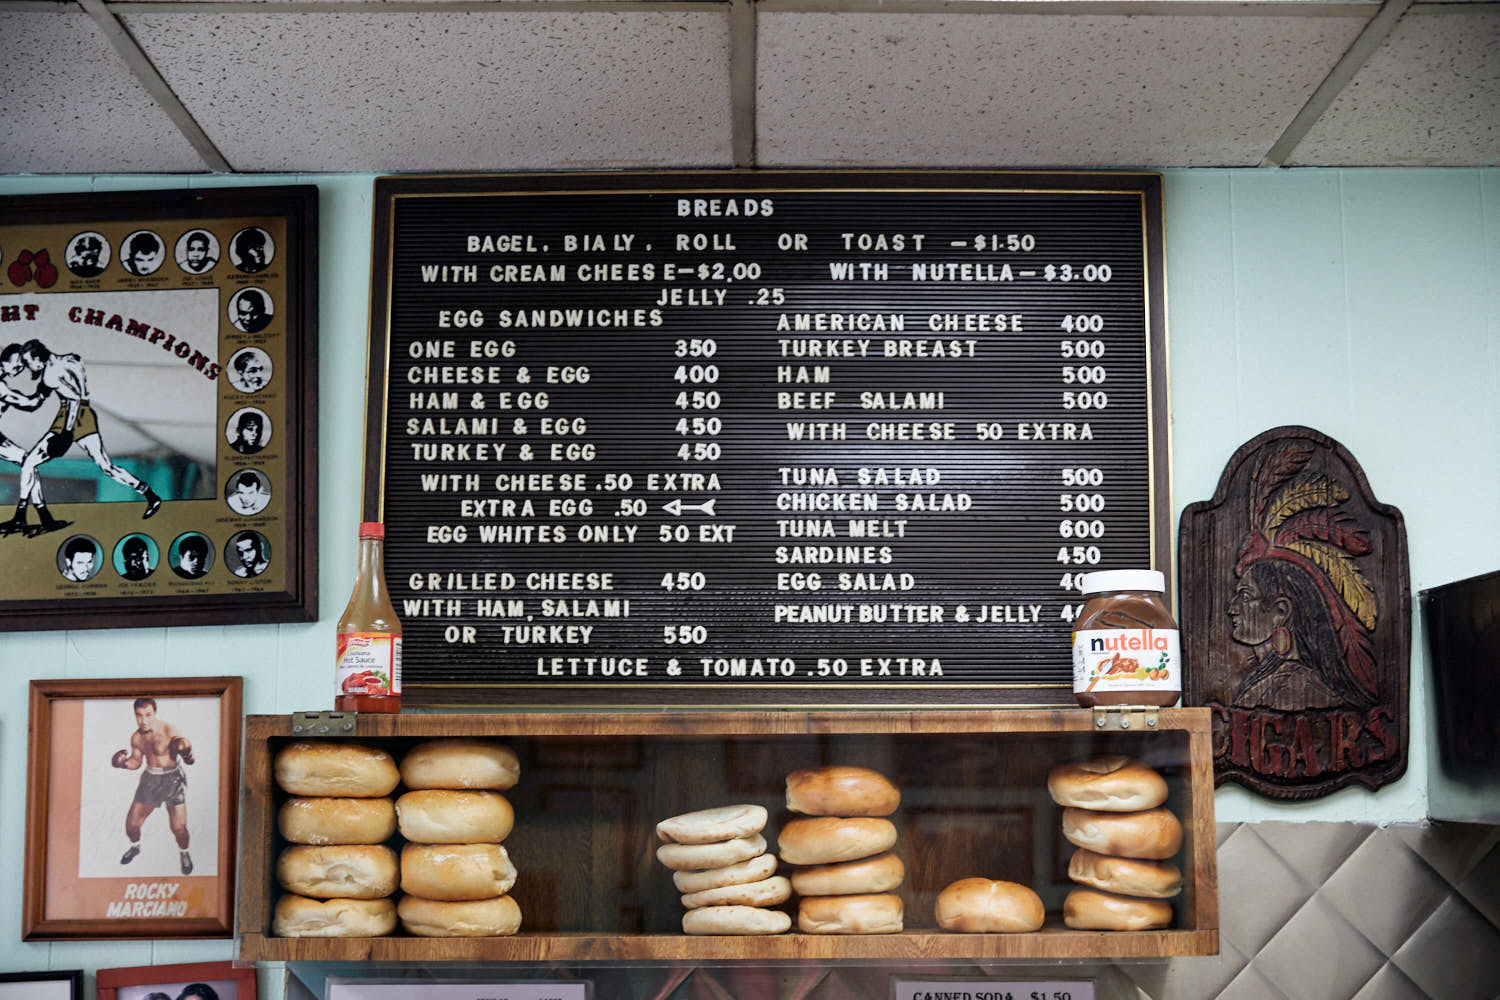 BREADS
BAGEL. BIALY. ROLL OR TOAST -$1.50
WITH CREAM CHEESE-$2.00 WITH NUTELLA-$3.00
JELLY .25
EGG SANDWICHES
ONE EGG 350
CHEESE & EGG 400
HAM & EGG 450
SALAMI & EGG 450
TURKEY & EGG 450
WITH CHEESE .50 EXTRA
EXTRA EGG .50
EGG WHITES ONLY 50 EXT
GRILLED CHEESE 450
WITH HAM, SALAMI
OR TURKEY 550
AMERICAN CHEESE 400
TURKEY BREAST 500
HAM 500
BEEF SALAMI 500
WITH CHEESE 50 EXTRA
TUNA SALAD 500
CHICKEN SALAD 500
TUNA MELT 600
SARDINES 450
EGG SALAD
PEANUT BUTTER & JELLY
LETTUCE & TOMATO .50 EXTRA
HT CHAMPIONS
ROCKY
MARCIANO
Louisiana
Hot Sauce
nutella
CIGARS
CANNED SODA $1.50